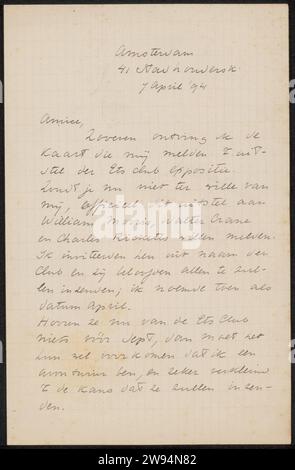 Amsterdam
41 Stadhoudersk
7 April '94
Amice,
Zooeven ontving ik de
kaart die mij melden 't uit-
stel der Ets club
Zoudt je nu niet ter wille van
mij, officieel 't uitstel aan
William Morris, Walter Crane
en Charles Ricketts willen melden.
Ik inviteerden hen uit naam der
Club en zij beloofden allen te zul-
len inzenden; ik noemde toen als
datum April.
Hooren ze nu van de Ets Club
niets vóór Sept, dan moet het
hun zel voorkomen dat ik een
avonturier ben, en zeker verkleind
't de kans dat ze zullen inzen-
den.
alamy
Image ID: 2W94N82
www.alamy.com